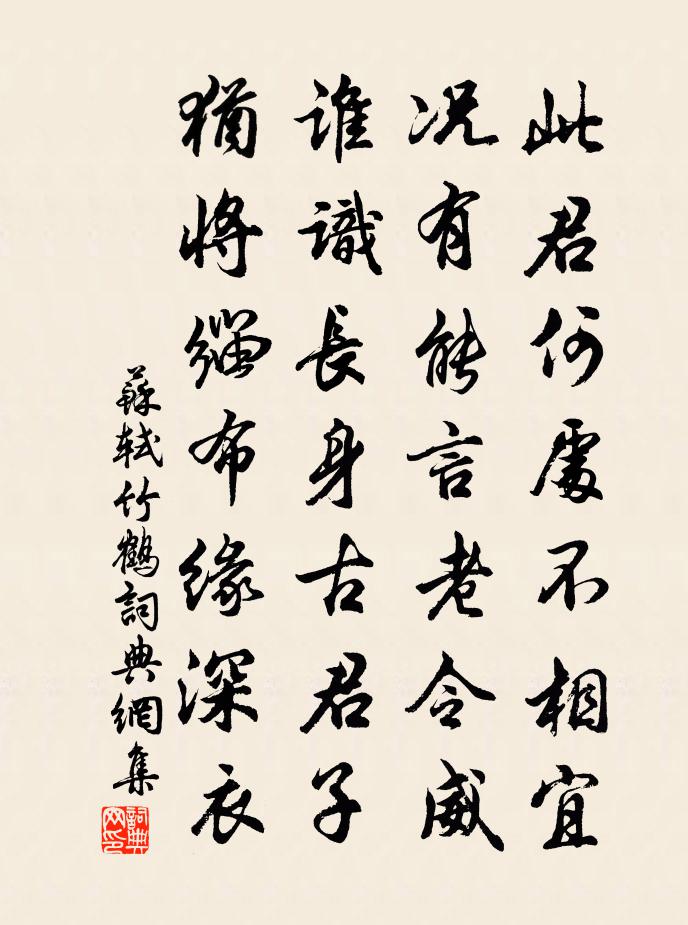 此君何處不相宜
況有能言老令威
誰識長身古君子
猶將緇布緣深衣
蘇軾竹鶴詞典網集
詞典網印